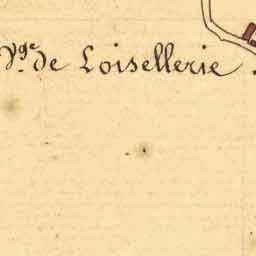 Vge de Loisellerie